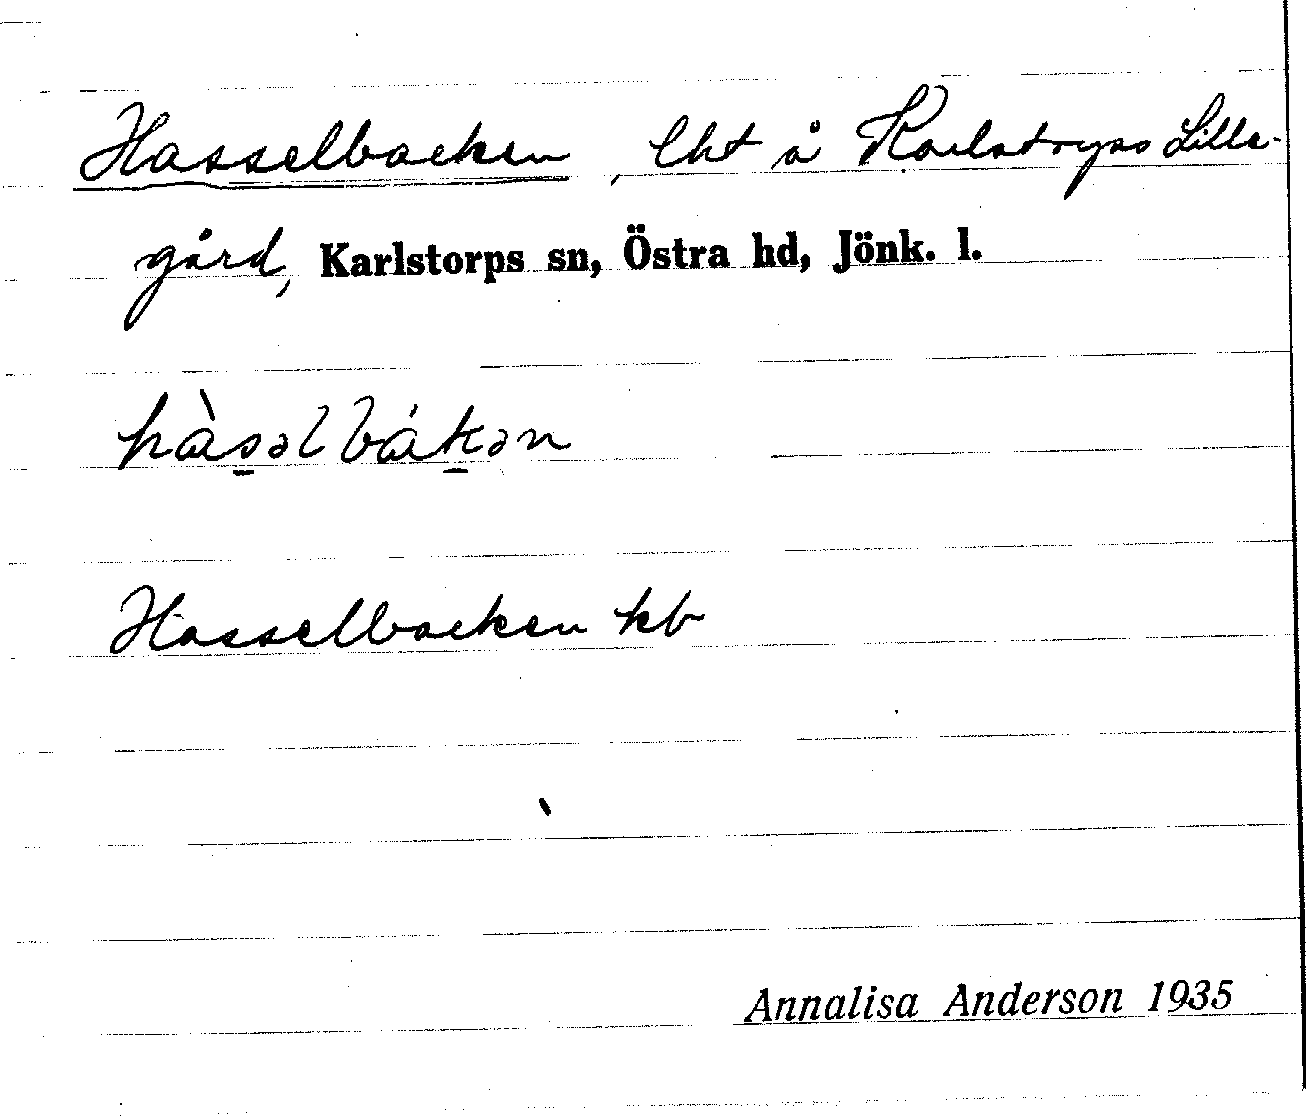 Hasselbacken, lht å Karlstorps Lilla-
gård, Karlstorps sn, Östra hd, Jönk. l.
hàs̱əlbáḵən
Hasselbacken kb
Annalisa Anderson 1935